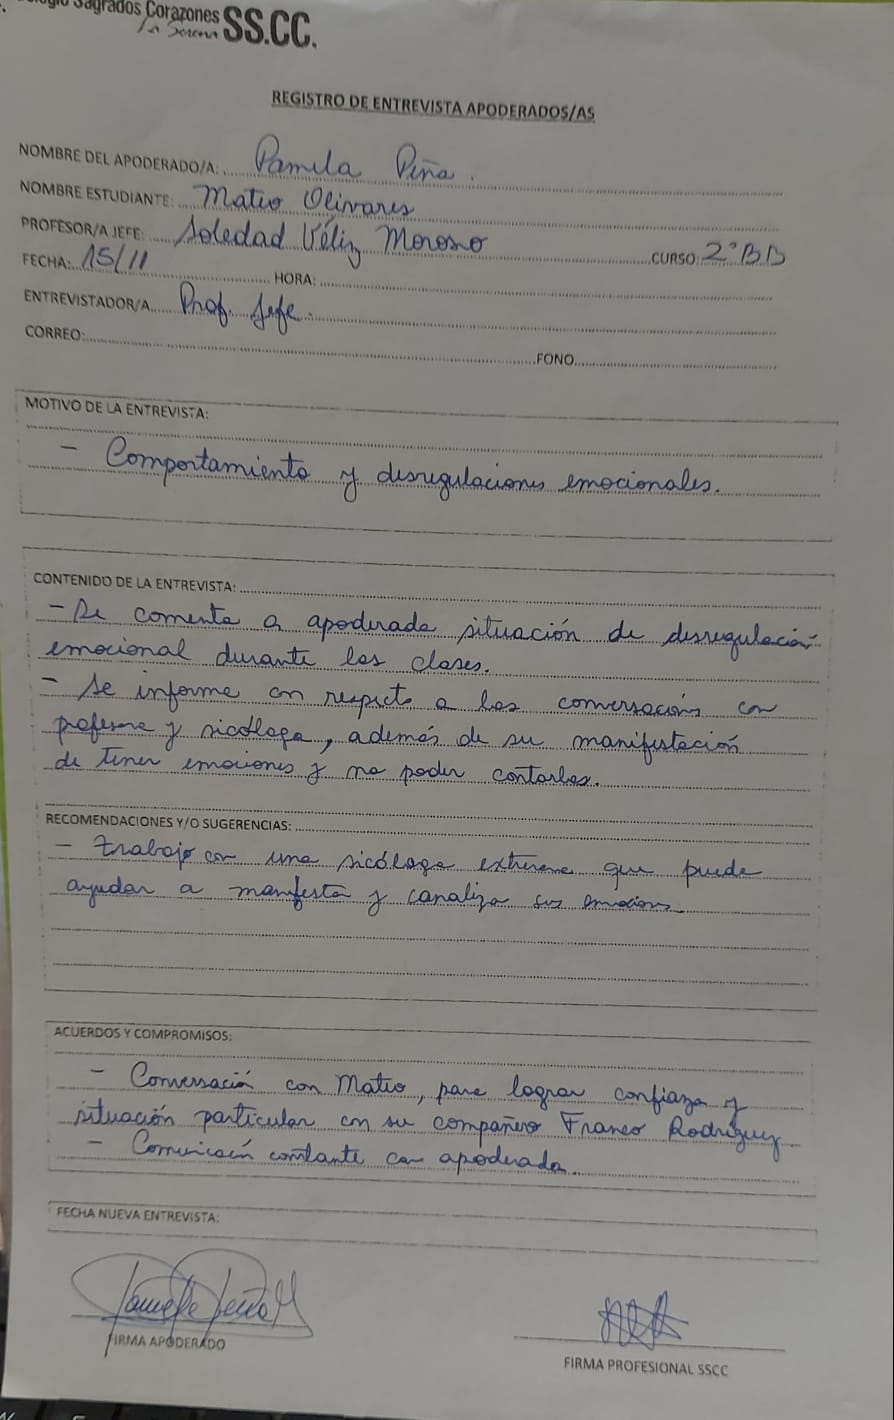 Sagrados Corazones
La Serena SS.CC.
REGISTRO DE ENTREVISTA APODERADOS/AS
NOMBRE DEL APODERADO/A: Pamela Piña.
NOMBRE ESTUDIANTE: Mateo Olivares
PROFESOR/A JEFE: Soledad Véliz Moroso CURSO: 2° BB
FECHA: 15/11 HORA:
ENTREVISTADOR/A Prof. Jefe.
CORREO: FONO
MOTIVO DE LA ENTREVISTA:
- Comportamiento y desregulaciones emocionales.
CONTENIDO DE LA ENTREVISTA:
- Se comenta a apoderada situación de desregulación
emocional durante las clases.
- Se informa con respecto a las conversación con
profesora y sicóloga, además de su manifestación
de tener emociones y no poder contarlas.
RECOMENDACIONES Y/O SUGERENCIAS:
- trabajo con una sicóloga externa que puede
ayudar a manifesta y canaliza sus emocions.
ACUERDOS Y COMPROMISOS:
- Conversación con Mateo, para lograr confianza y
situación particular con su compañero Franco Rodríguez
- Comunicación constante con apoderada.
FECHA NUEVA ENTREVISTA:
FIRMA APODERADO
FIRMA PROFESIONAL SSCC